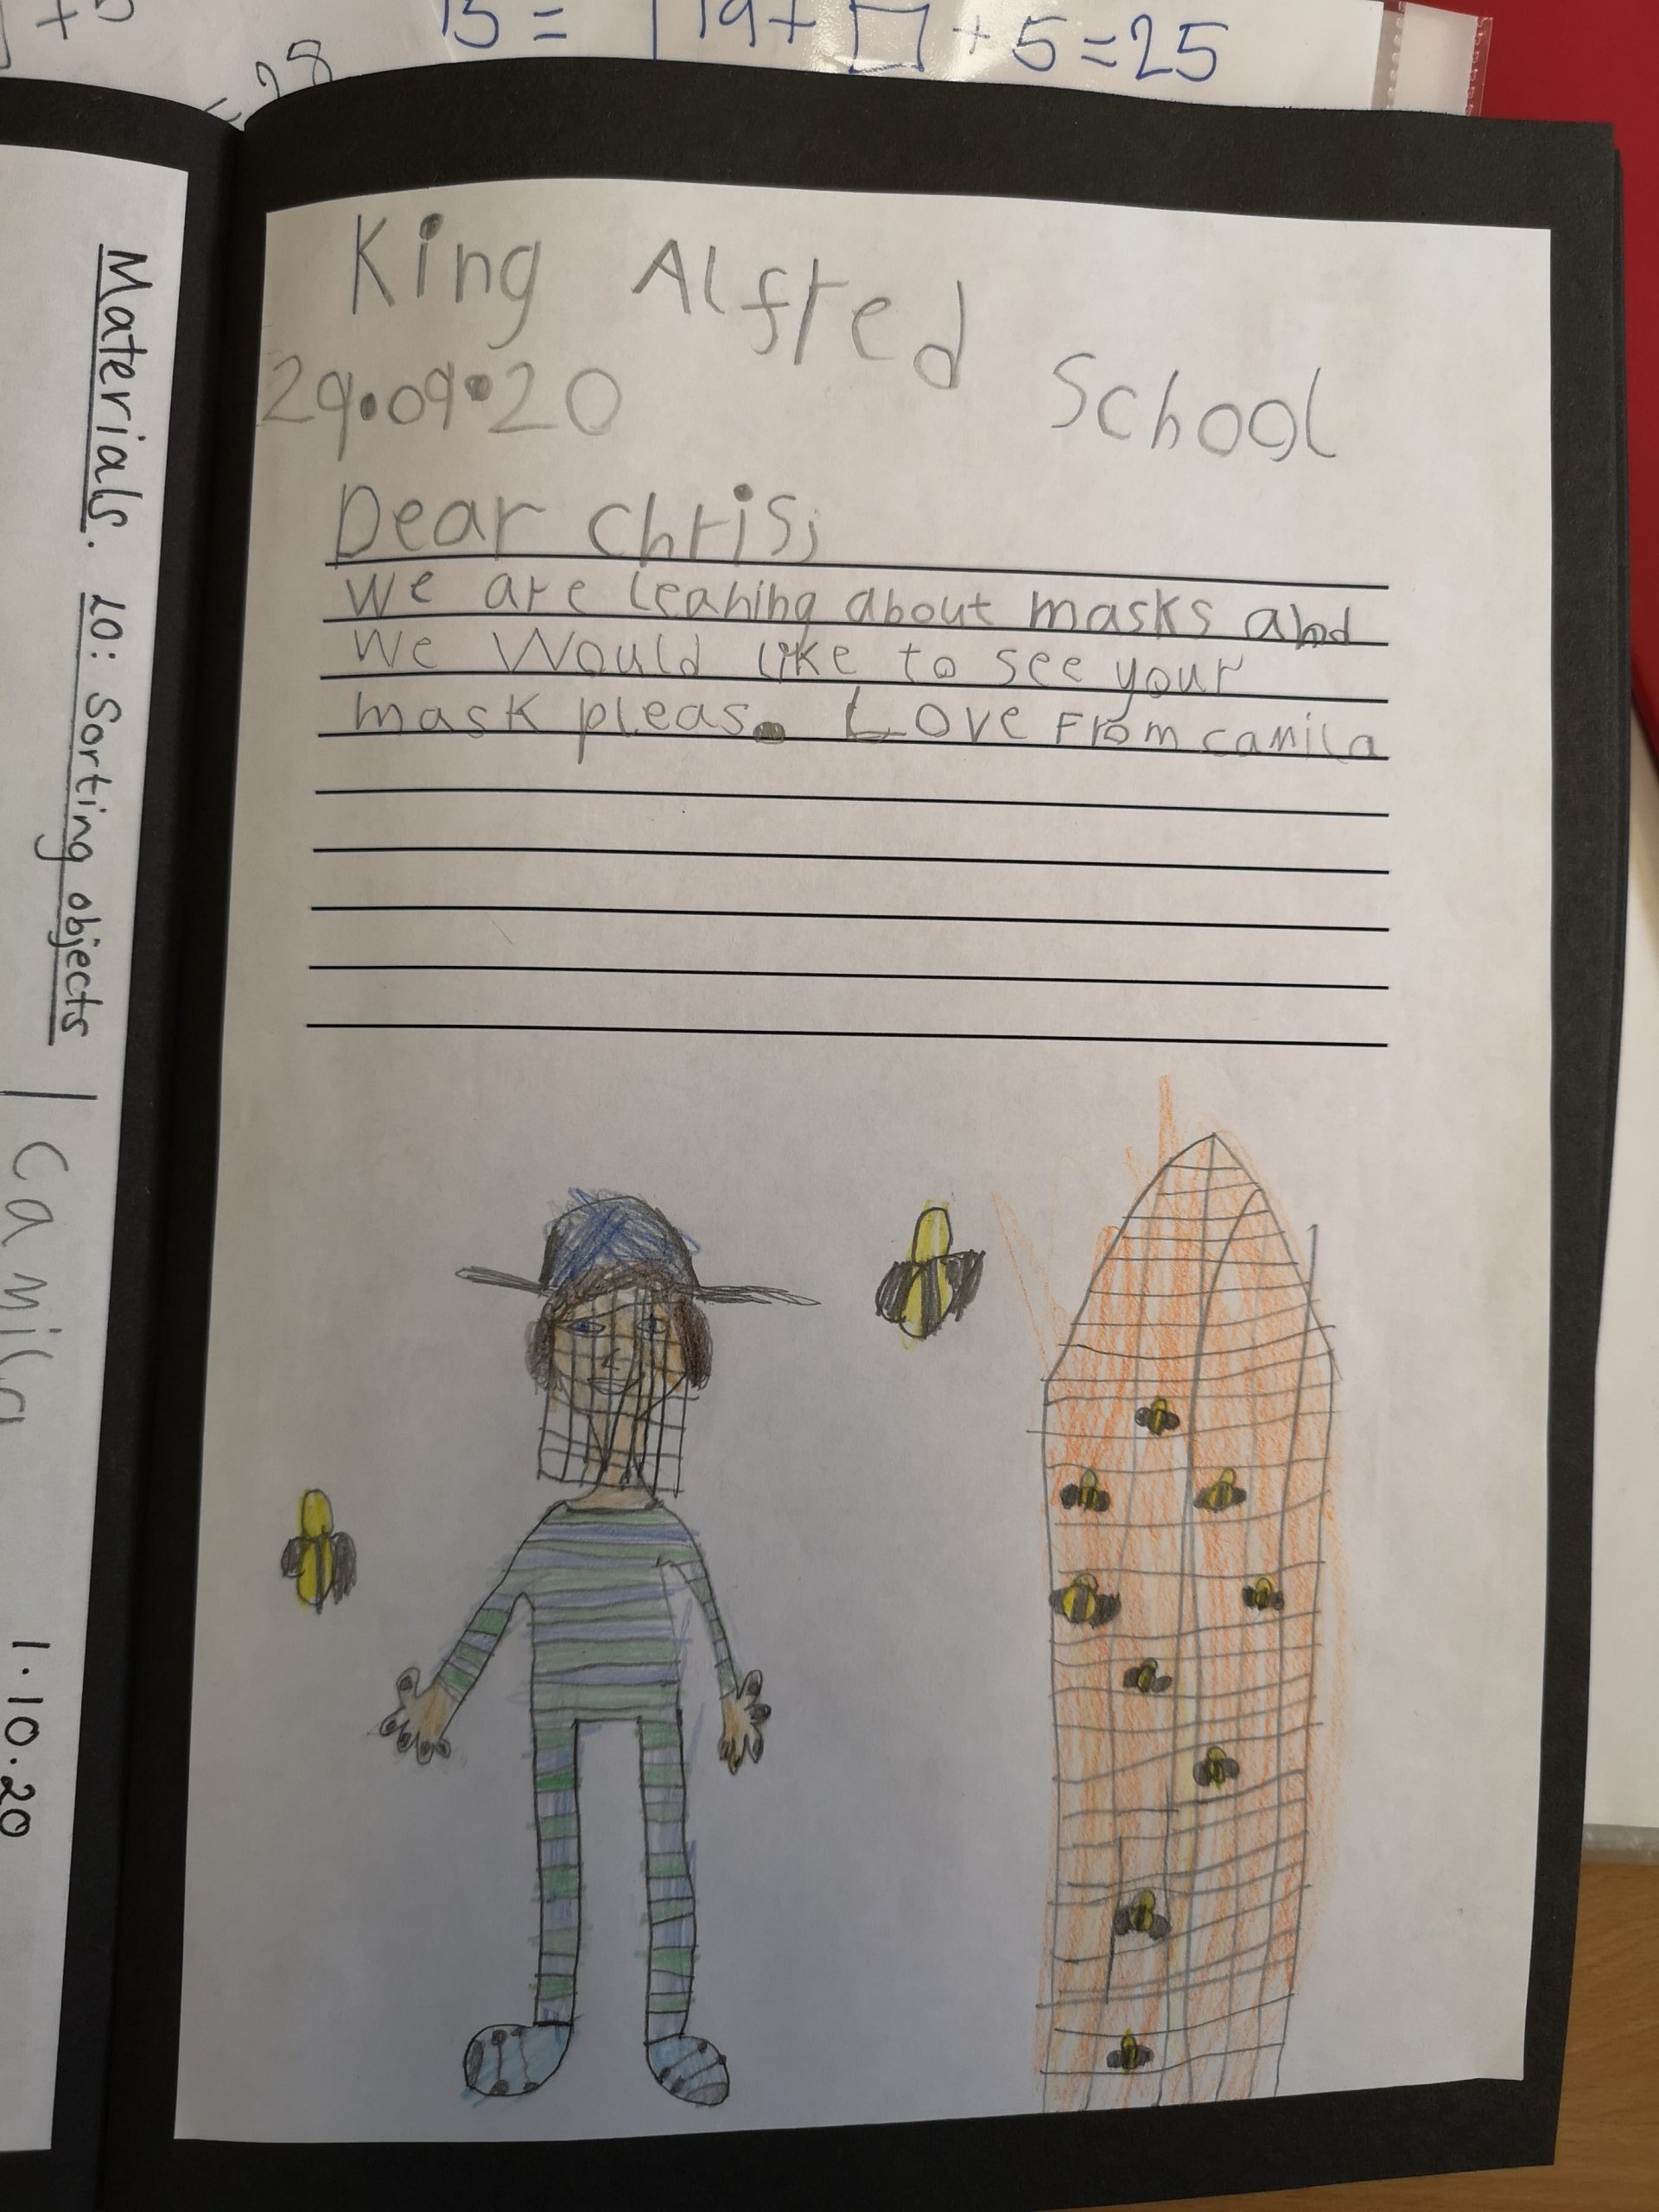 15 =
19 + □ + 5 = 25
= 28
King Alfred School
29.09.20
Dear chris,
We are leaning about masks and
we would like to see your
mask pleas. Love From camila
Materials. LO: Sorting objects
Camila
1.10.20